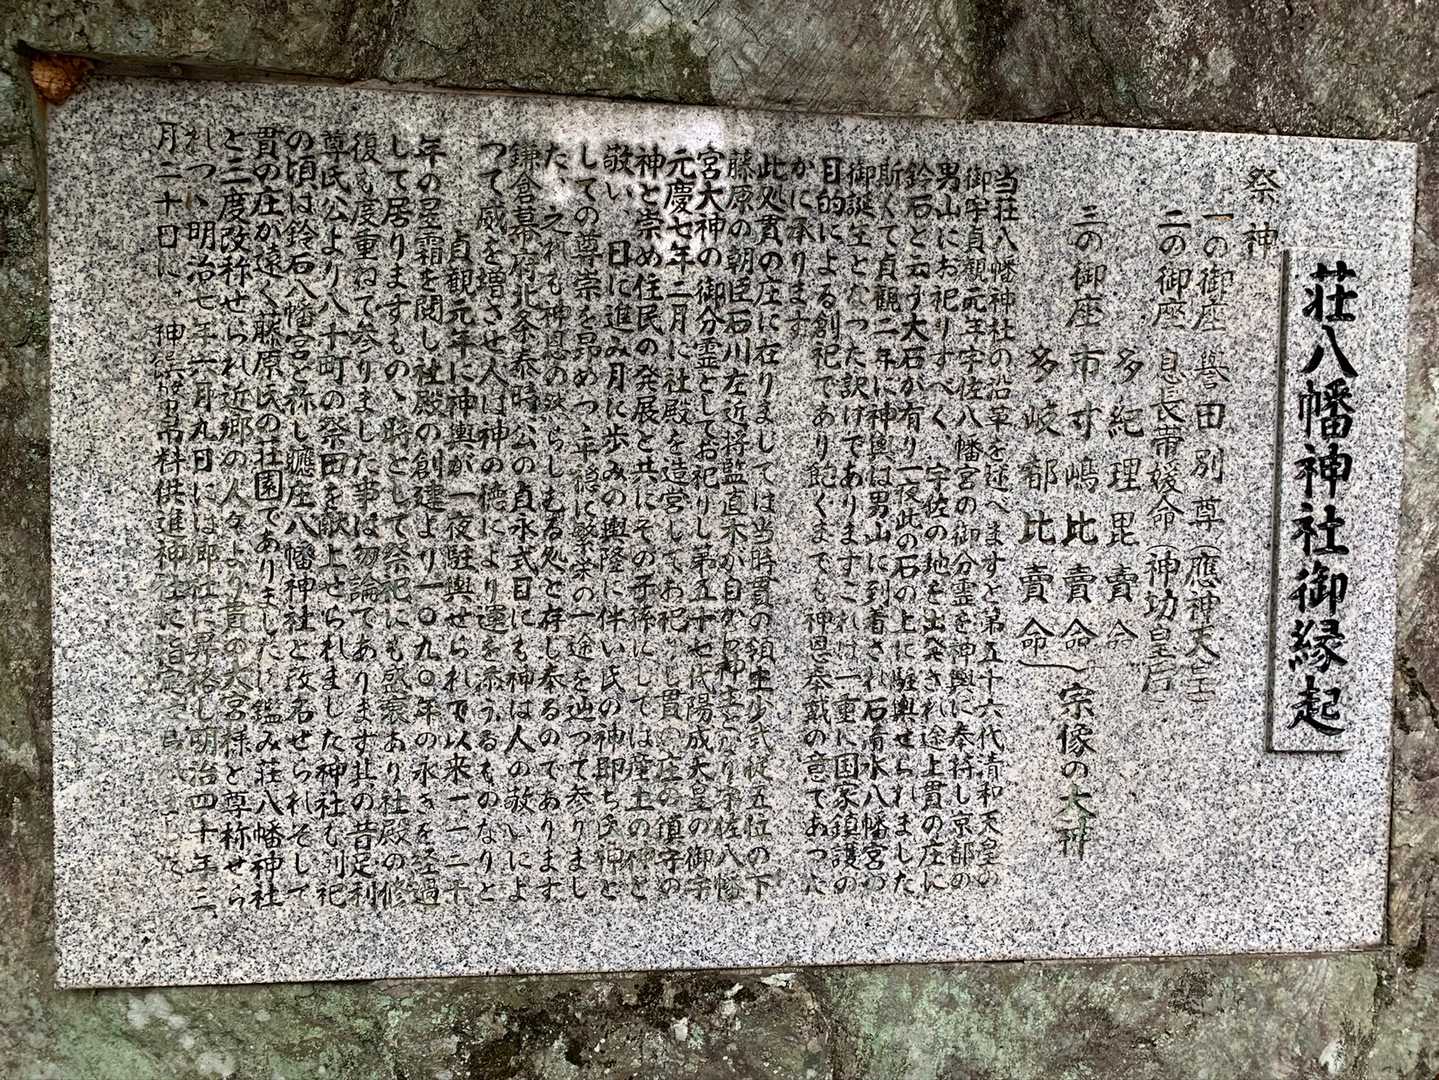 荘八幡神社御縁起
祭神
一の御座 誉田別尊(應神天皇)
二の御座 息長帯媛命(神功皇后)
多紀理毘賣命
三の御座 市寸嶋比賣命 宗像の大神
多岐都比賣命
当荘八幡神社の沿革を述べますと第五十六代清和天皇の
御宇貞観元年宇佐八幡宮の御分霊を神輿に奉持し京都の
男山にお祀りすべく、宇佐の地を出発され途上貫の庄に
鈴石と云う大石が有り一夜此の石の上に駐輿せられました
斯くて貞観二年に神輿は男山に到着され石清水八幡宮の
御誕生となった訳けでありますこれは一重に国家鎮護の
目的による創祀であり飽くまでも神恩奉戴の意であった
かに承ります
此処貫の庄に在りましては当時貫の領主少弐従五位の下
藤原の朝臣石川左近将監直木が自から神主となり宇佐八幡
宮大神の御分霊としてお祀りし第五十七代陽成天皇の御宇
元慶七年二月に社殿を造営してお祀し貫の庄の鎮守の
神と崇め住民の発展と共にその子孫にしては産土の神と
敬い、日に進み月に歩みの興隆に伴い氏の神即ち氏神と
しての尊宗を昂めつゝ年穏に繁栄の一途を辿って参りまし
た、之れも神恩の然らしむる処と存じ奉るのであります
鎌倉幕府北条泰時公の貞永式目にも神は人の敬いによ
って威を増させ人は神の徳により運を添うるものなりと
貞観元年に神輿が一夜駐輿せられて以来一、一二千
年の星霜を閲し社殿の創建より一〇九〇年の永きを経過
して居りますもの、時として祭祀にも盛衰あり社殿の修
復も度重ねて参りました事は勿論であります其の昔足利
尊氏公より八十町の祭田を献上せられました神社も別祀
の頃は鈴石八幡宮と称し貫庄八幡神社と改名せられそして
貫の庄が遠く藤原氏の荘園でありましたに鑑み荘八幡神社
と三度改称せられ近郷の人々より貫の大宮様と尊称せら
れつゝ明治七年六月九日には郷社に昇格し明治四十年三
月二十日に、神饌幣帛料供進神社に指定